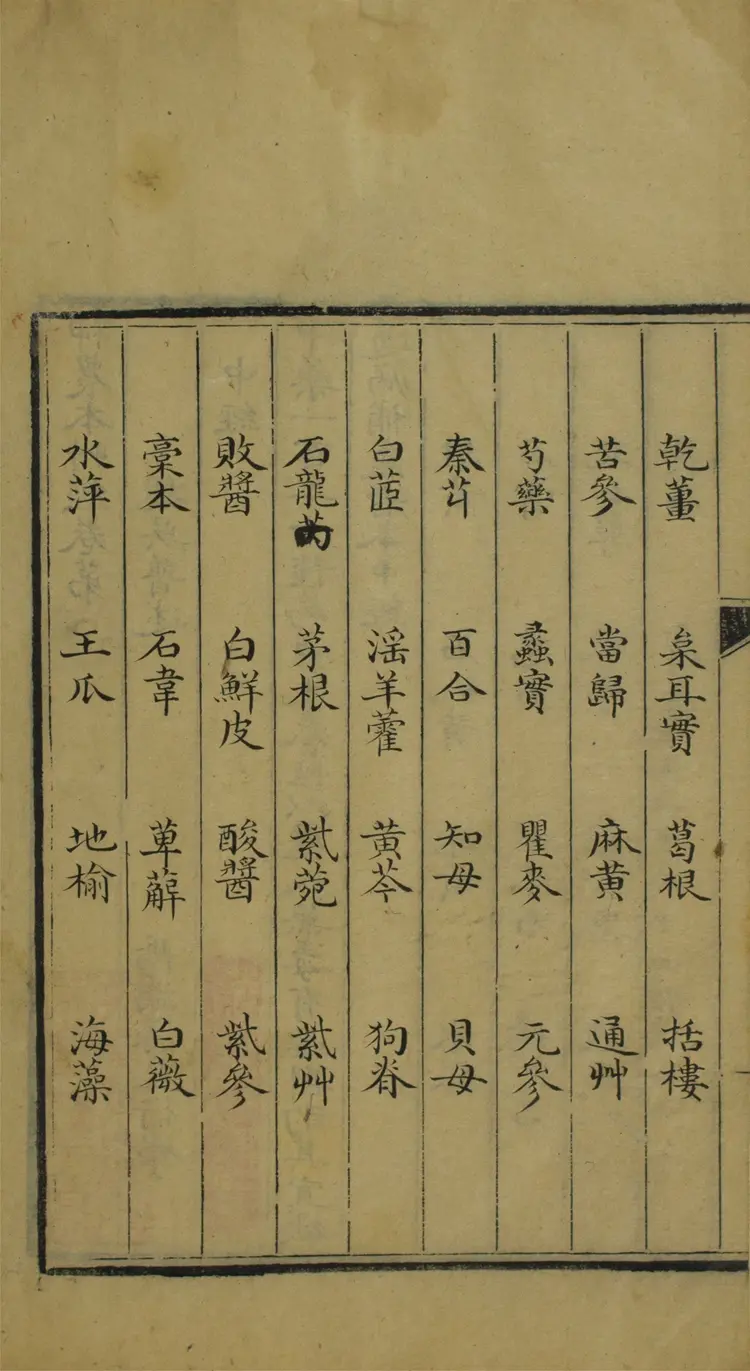 乾薑 枲耳實 葛根 括樓
苦參 當歸 麻黃 通艸
芍藥 蠡實 瞿麥 元參
秦艽 百合 知母 貝母
白茝 淫羊藿 黃芩 狗脊
石龍芮 茅根 紫菀 紫艸
敗醬 白鮮皮 酸醬 紫參
藁本 石韋 萆薢 白薇
水萍 王瓜 地榆 海藻